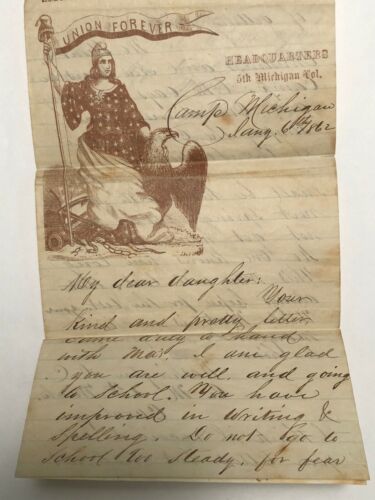 UNION FOREVER
HEADQUARTERS
5th Michigan Vol.
Camp Michigan
Jany. 6th 1862
My dear daughter:
Your
kind and pretty letter
came duly to hand
with Ma's. I am glad
you are well and going
to school. You have
improved in Writing &
Spelling. Do not go to
school too steady, for fear